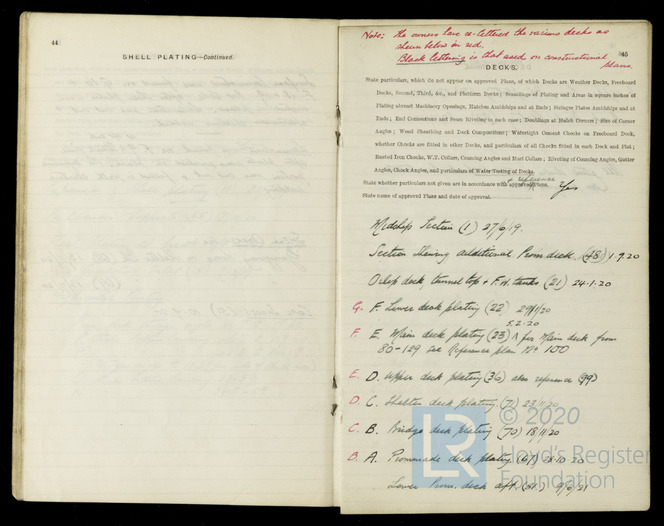 44
SHELL PLATING—Continued.
Note: The owners have re-lettered the various decks as
shewn below in red.
Black lettering is that used on constructional
plans.
45
DECKS.
State particulars, which do not appear on approved Plans, of which Decks are Weather Decks, Freeboard
Decks, Second, Third, &c., and Platform Decks; Scantlings of Plating and Areas in square inches of
Plating abreast Machinery Openings, Hatches Amidships and at Ends; Stringer Plates Amidships and at
Ends; End Connections and Seam Riveting in each case; Doublings at Hatch Corners; Size of Corner
Angles; Wood Sheathing and Deck Compositions; Watertight Cement Chocks on Freeboard Deck,
whether Chocks are fitted in other Decks, and particulars of all Chocks fitted in each Deck and Flat;
Riveted Iron Chocks, W.T. Collars, Coaming Angles and Mast Collars; Riveting of Coaming Angles, Gutter
Angles, Chock Angles, and particulars of Water Testing of Decks.
& reference
State whether particulars not given are in accordance with approved plans. Yes
State name of approved Plans and date of approval.
Midship Section (1) 27/6/19.
Section Shewing additional Prom deck. (48) 1.9.20
Orlop deck, tunnel top & F.W. tanks (21) 24.1.20
G. F. Lower deck plating (22) 29/1/20
5.2.20
F. E. Main deck plating (23) ʌ for Main deck from
80-129 see Reference plan No 100
E. D. Upper deck plating (36) also reference (99)
D. C. Shelter deck plating (71) 23/11/20
C. B. Bridge deck plating (70) 18/11/20
B. A. Promenade deck plating (67) 28.10.20
Lower Prom. deck aft.
© 2020
LR
Lloyd's Register
Foundation